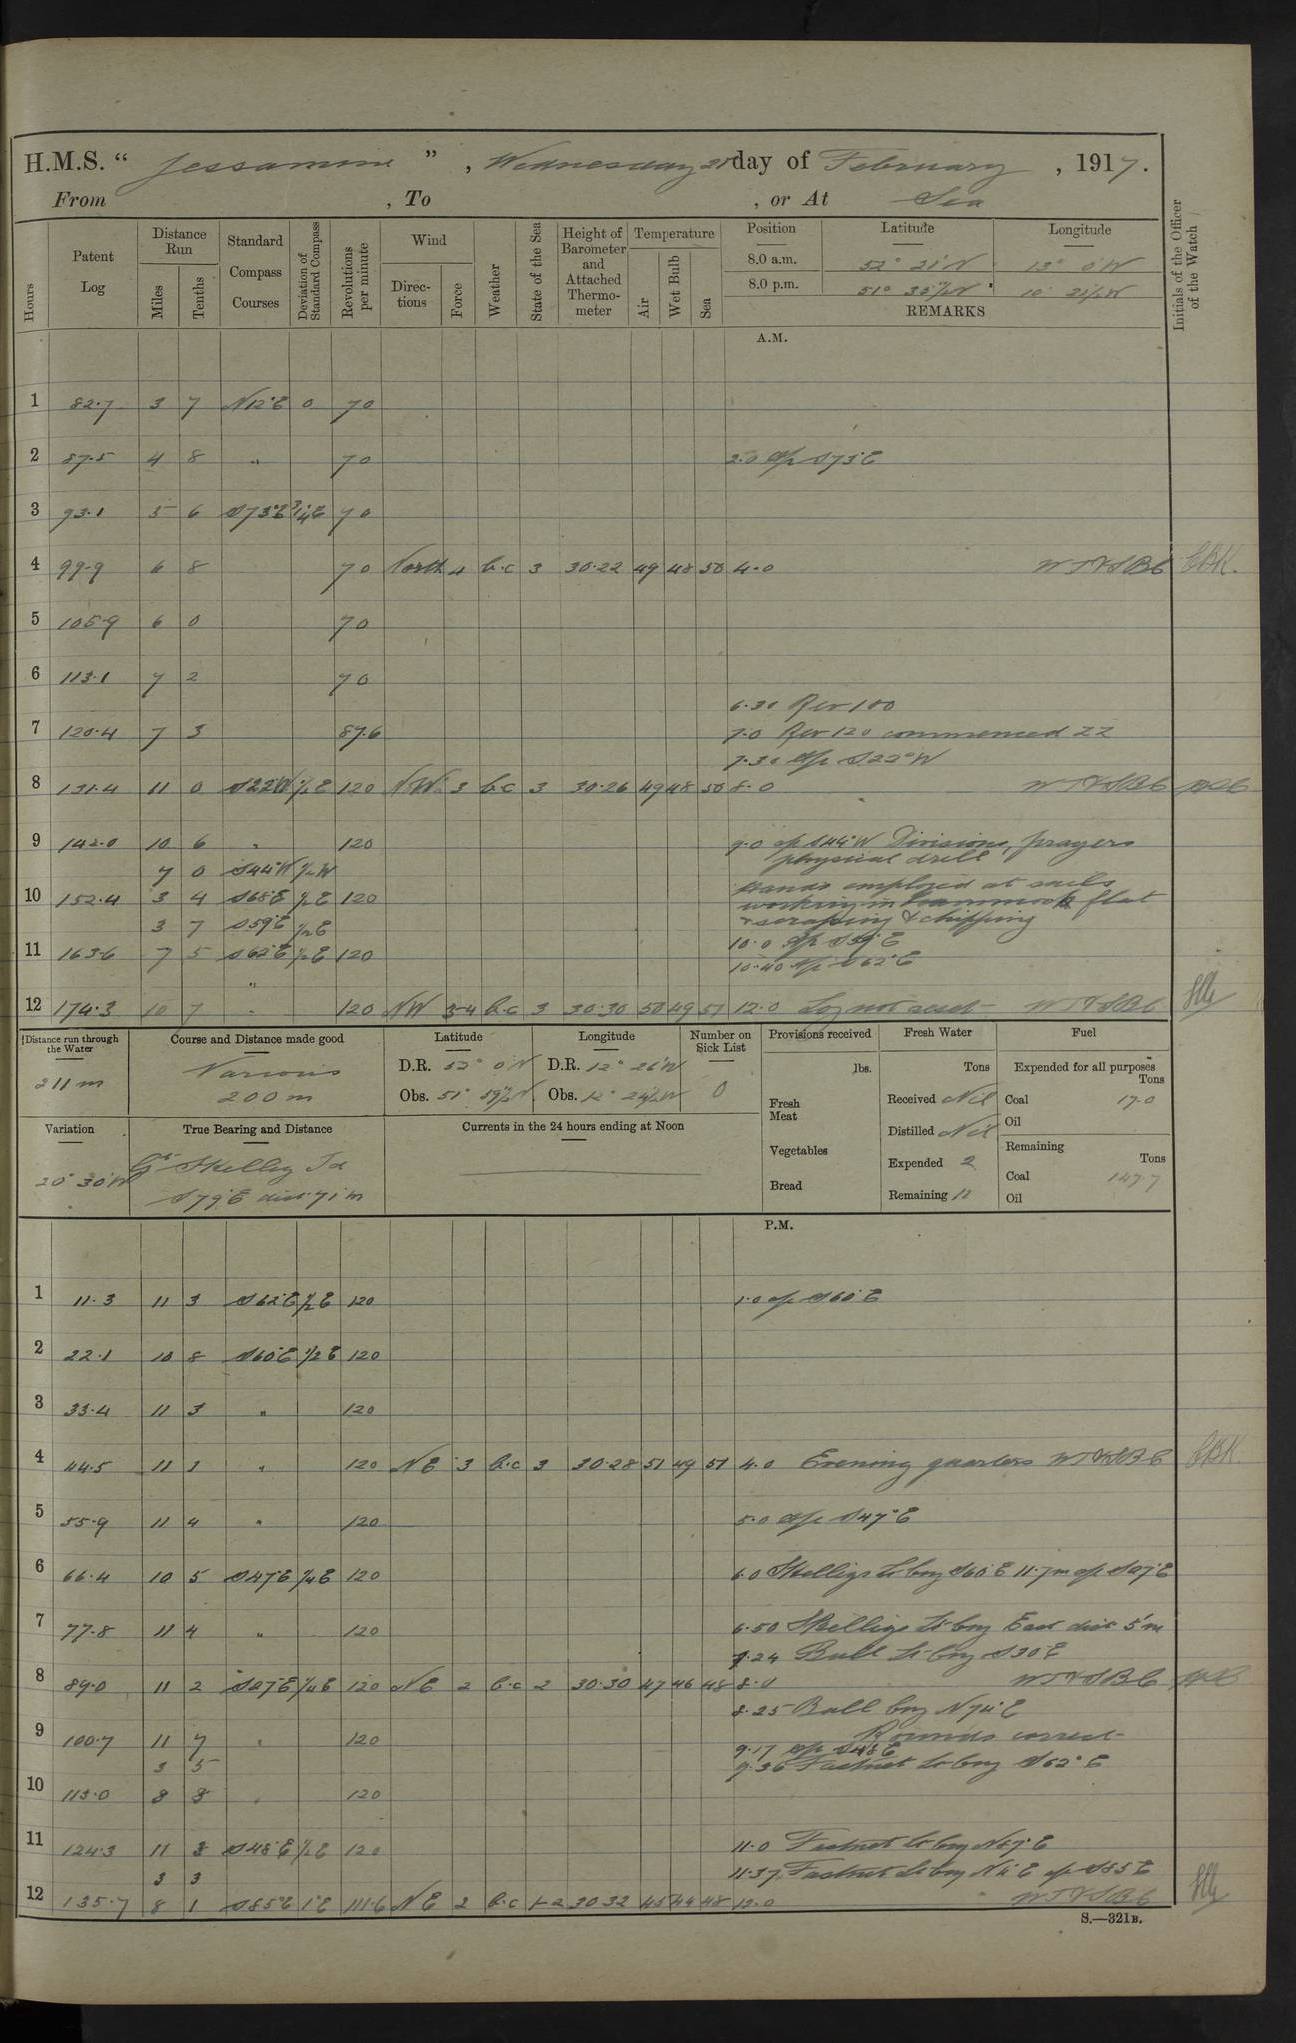 H.M.S. “ Jessamine ” , Wednesday 21 day of February , 1917.
From , To , or At Sea
Hours
Patent Log
Distance Run
Miles
Tenths
Standard Compass Courses
Deviation of Standard Compass
Revolutions per minute
Wind
Directions
Force
Weather
State of the Sea
Height of Barometer and Attached Thermometer
Temperature
Air
Wet Bulb
Sea
Position Latitude Longitude
8.0 a.m. 52° 21' N 13° 0' W
8.0 p.m. 51° 35½' N 10° 21½' W
REMARKS
Initials of the Officer of the Watch
A.M.
1 82.7 3 7 N12°E 0 70
2 87.5 4 8 " 70 2.0 a/c S73°E
3 93.1 5 6 S73°E ¾E 70
4 99.9 6 8 70 North 4 b.c 3 30.22 49 48 50 4.0 CBK.
5 105.9 6 0 70
6 113.1 7 2 70
6.30 Rev 100
7 120.4 7 3 87.6 7.0 Rev 120 commenced ZZ
7.30 a/c S22°W
8 131.4 11 0 S22°W ½E 120 NW 3 b.c 3 30.26 49 48 50 8.0
9 142.0 10 6 " 120 9.0 a/c S44°W Divisions, prayers
physical drill
7 0 S44°W ½W
Hands employed at sails
10 152.4 3 4 S68°E ½E 120 working in hammock flat
3 7 S59°E ½E & scraping & chipping
10.0 a/c S59°E
11 163.6 7 5 S62°E ½E 120 10.40 a/c S62°E
"
12 174.3 10 7 " 120 NW 3-4 b.c 3 30.30 50 49 51 12.0 Log not used
Distance run through the Water
211 m
Course and Distance made good
Various
200 m
Latitude Longitude
D.R. 52° 0' N D.R. 12° 26' W
Obs. 51° 59½' N Obs. 12° 24½' W
Number on Sick List
0
Provisions received
lbs.
Fresh Meat
Vegetables
Bread
Fresh Water
Tons
Received Nil
Distilled Nil
Expended 2
Remaining 11
Fuel
Expended for all purposes
Tons
Coal 17.0
Oil
Remaining
Tons
Coal 147.7
Oil
Variation
20° 30' W
True Bearing and Distance
Gt Skellig Id
S79°E dist 71 m
Currents in the 24 hours ending at Noon
P.M.
1 11.3 11 3 S62°E ½E 120 1.0 a/c S60°E
2 22.1 10 8 S60°E ½E 120
3 33.4 11 3 " 120
4 44.5 11 1 " 120 NE 3 b.c 3 30.28 51 49 51 4.0 Evening quarters CBK.
5 55.9 11 4 " 120 5.0 a/c S47°E
6 66.4 10 5 S47°E ¼E 120 6.0 Skelligs Lt brg S60°E 11.7m a/c S27°E
7 77.8 11 4 " 120 6.50 Skelligs Lt brg East dist 5'm
7.24 Bull Lt brg S30°E
8 89.0 11 2 S27°E ¼E 120 NE 2 b.c 2 30.30 47 46 48 8.0
8.25 Bull brg N74°E
9 100.7 11 7 " 120 Rounds correct
9.17 a/c S48°E
3 5 9.36 Fastnet Lt brg S62°E
10 113.0 8 8 " 120
11 124.3 11 3 S48°E ½E 120 11.0 Fastnet Lt brg N87°E
3 3 11.37 Fastnet Lt brg N4°E a/c S85°E
12 135.7 8 1 S85°E 1°E 111.6 NE 2 b.c 1-2 30.32 45 44 48 12.0
S.—321B.